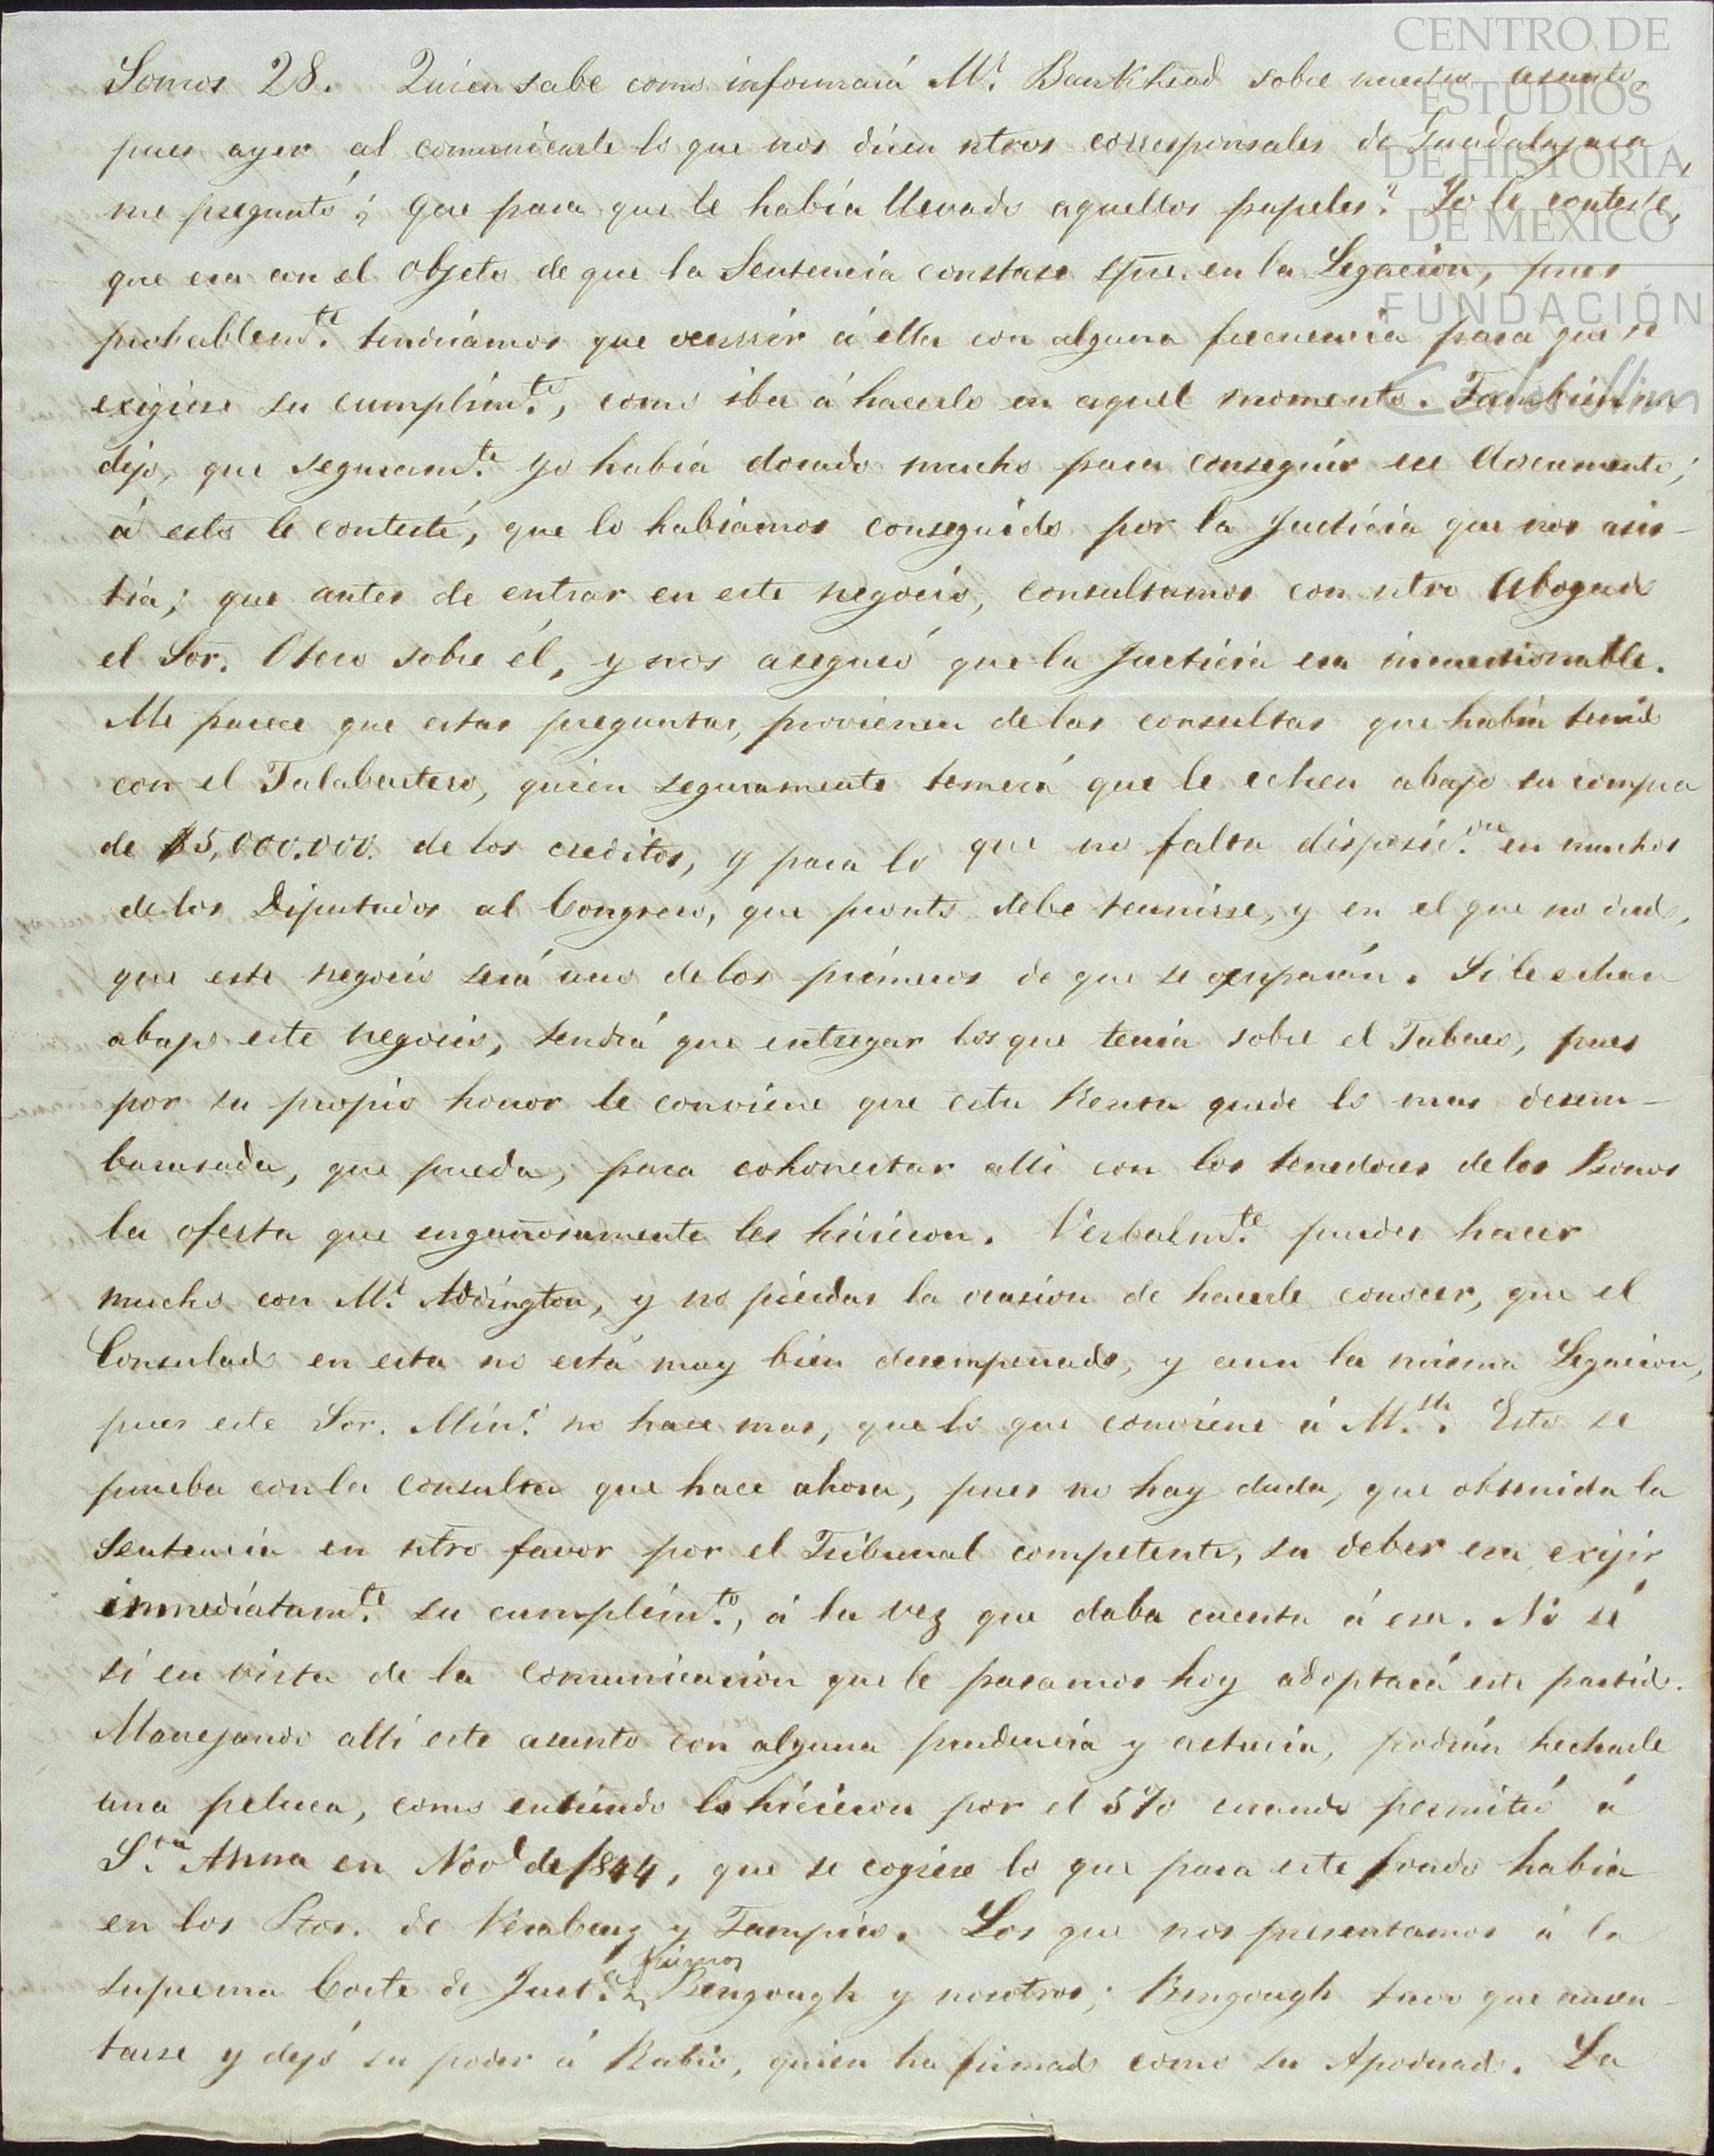 CENTRO DE
ESTUDIOS
DE HISTORIA
DE MEXICO
FUNDACIÓN
Carlos Slim
Somos 28. Quien sabe como informará Mr. Bankhead sobre nuestro asunto,
pues ayer al comunicarle lo que nos dicen ntros corresponsales de Guadalajara,
me preguntó; que para que le habia llevado aquellos papeles? Yo le contesté,
que era con el objeto de que la Sentencia constase spre. en la Legacion, pues
probablemte. tendriámos que ocurrir á ella con alguna frecuencia para que se
exigiese su cumplimto., como iba á hacerlo en aquel momento. Tambien me
dijo, que seguramte. yo habia dorado mucho para conseguir ese documento;
á esto le contesté, que lo habiamos conseguido por la Justicia que nos asis-
tia; que antes de entrar en este negocio, consultamos con ntro Abogado
el Sor. Otero sobre él, y nos aseguró que la Justicia era incuestionable.
Me parece que estas preguntas, provienen de las consultas que habia tenido
con el Talabartero, quien seguramente temerá que le echen abajo su compra
de $5,000.000. de los creditos, y para lo que no falta disposicon. en muchos
de los Diputados al Congreso, que pronto debe reunirse, y en el que no dudo,
que este negocio será uno de los primeros de que se ocuparán. Si le echan
abajo este negocio, tendrá que entregar los que tenia sobre el Tabaco, pues
por su propio honor le conviene que esta Renta quede lo mas desem-
barasada, que pueda, para cohonestar alli con los tenedores de los Bonos
la oferta que engañosamente les hicieron. Verbalmte. puedes hacer
mucho con Mr. Addington, y no pierdas la ocasion de hacerle conocer, que el
Consulado en esta no está muy bien desempeñado, y aun la misma Legacion,
pues este Sor. Minro. no hace mas, que lo que conviene á M. Esto se
prueba con la consulta que hace ahora, pues no hay duda, que obtenida la
Sentencia en ntro favor por el Tribunal competente, su deber era exijir
inmediatamte. su cumplimto., á la vez que daba cuenta á esa. No sé
si en vista de la comunicacion que le pasamos hoy adoptará este partido.
Manejando alli este asunto con alguna prudencia y astucia, podrán hecharle
una peluca, como entiendo lo hicieron por el 5% cuando permitió á
Sta. Anna en Nove. de 1844, que se cogiese lo que para este fondo habia
en los Ptos. de Veracruz y Tampico. Los que nos presentamos á la
Suprema Corte de Justa. fuimos Bengough y nosotros; Bengough tuvo que ausen-
tarse y dejó su poder á Rubio, quien ha firmado como su Apoderado. La